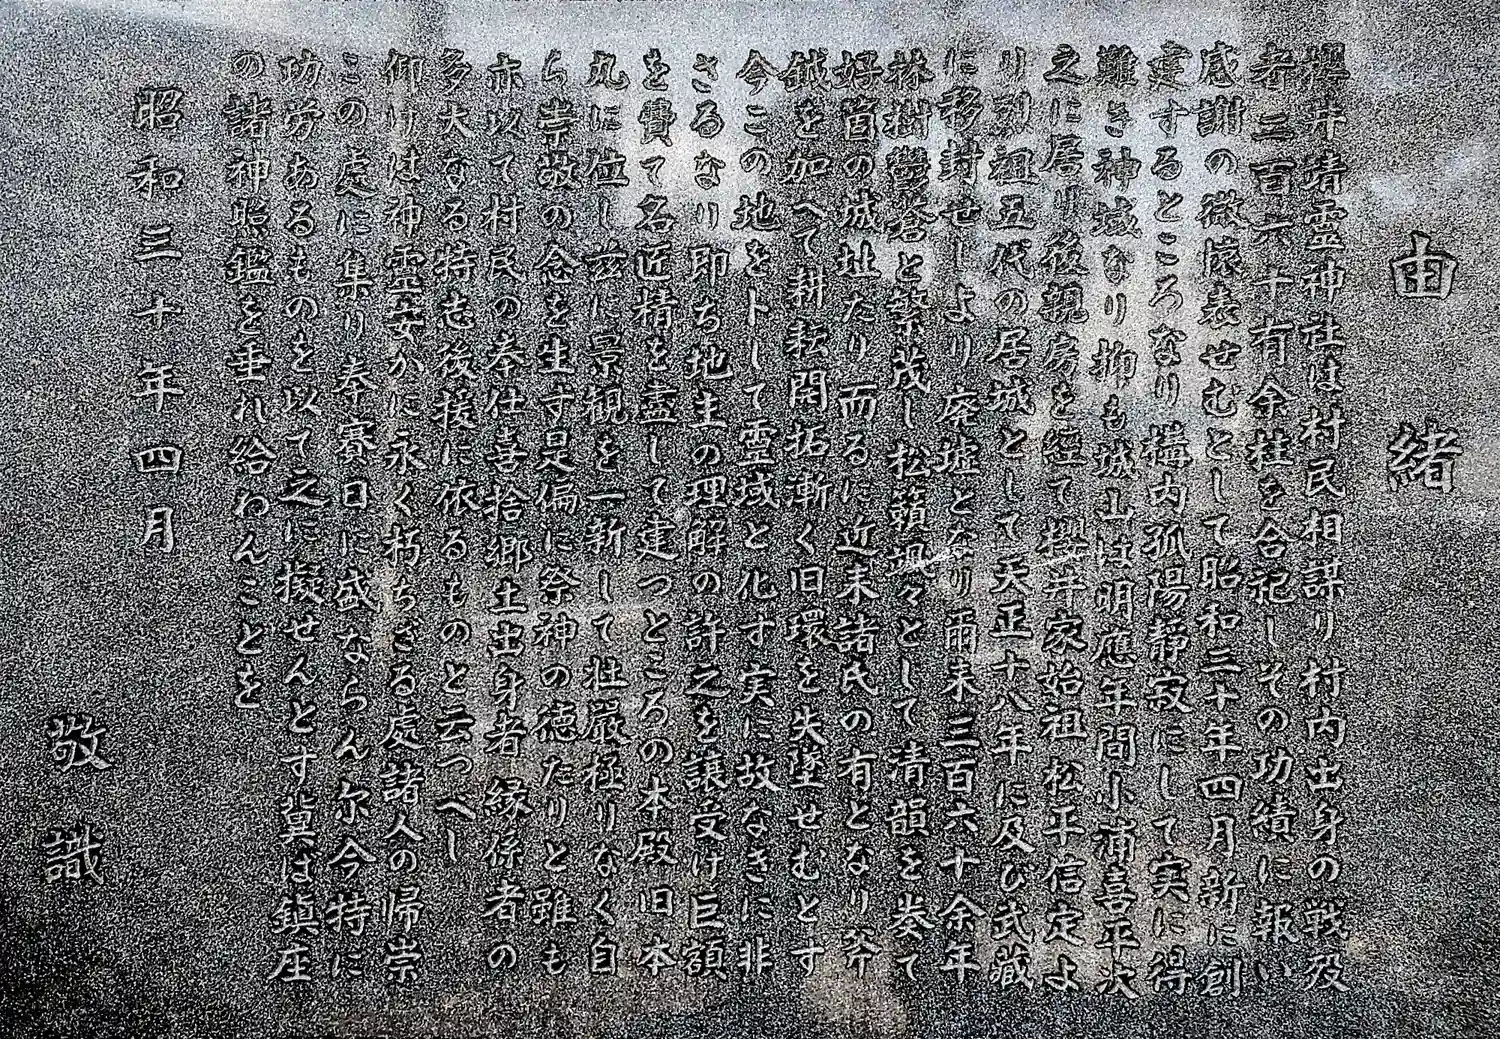 由緒
櫻井靖霊神社は村民相謀り村内出身の戦歿
者三百六十有余柱を合祀しその功績に報い
感謝の微懷表せむとして昭和三十年四月新に創
建するところなり構内孤陽静寂にして実に得
難き神域なり抑も城山は明應年間小浦喜平次
之に居り後親房を經て櫻井家始祖松平信定よ
り列祖五代の居城として天正十八年に及び武蔵
に移封せしより廃墟となり爾来三百六十余年
林樹鬱蒼と繁茂し松籟颯々として清韻を奏て
好箇の城址たり而るに近来諸氏の有となり斧
鉞を加へて耕耘開拓漸く旧環を失墜せむとす
今この地を卜して霊域と化す実に故なきに非
さるなり即ち地主の理解の許之を譲受け巨額
を費て名匠精を盡して建つところの本殿旧本
丸に位し茲に景観を一新して壮嚴極りなく自
ら崇敬の念を生す是偏に祭神の徳たりと雖も
亦以て村民の奉仕喜捨郷土出身者縁係者の
多大なる特志後援に依るものと云つべし
仰けは神霊安かに永く朽ちざる處諸人の帰崇
この處に集り奉賽日に盛ならん尓今特に
功労あるものを以て之に擬せんとす冀は鎮座
の諸神照鑑を垂れ給わんことを
昭和三十年四月
敬識